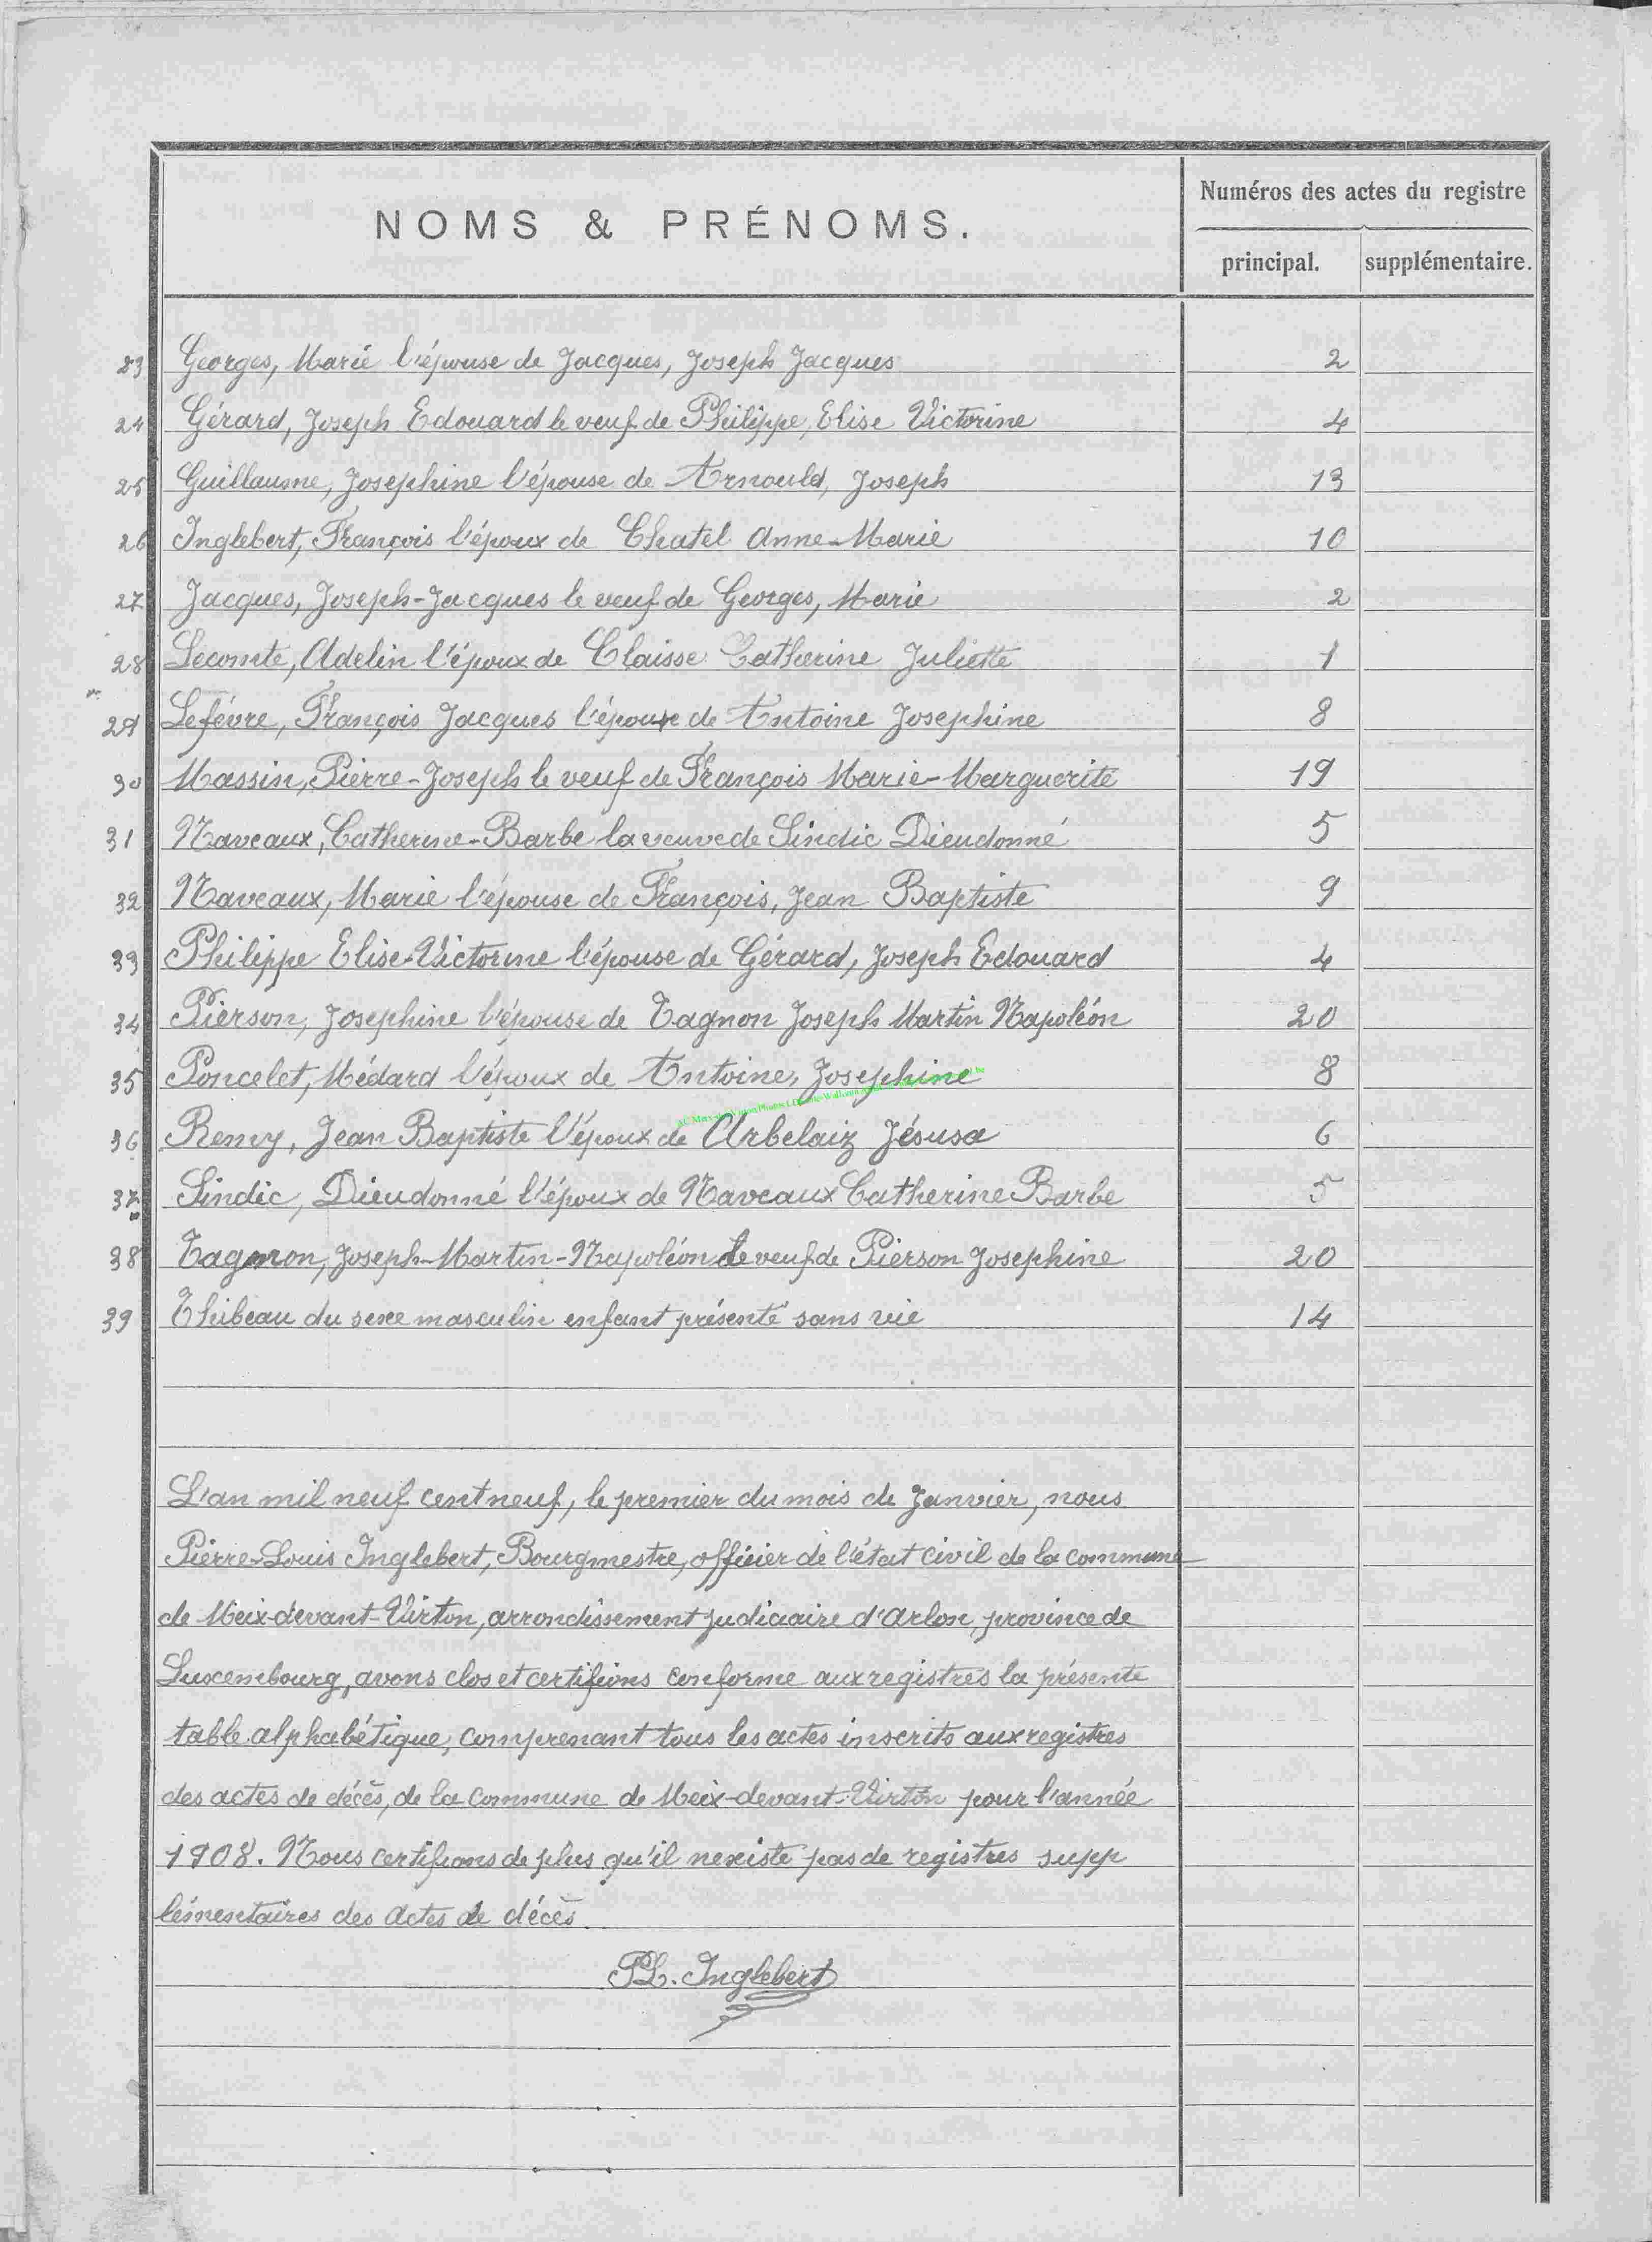 NOMS & PRÉNOMS.
Numéros des actes du registre
principal. supplémentaire.
23 Georges, Marie l'épouse de Jacques, Joseph Jacques 2
24 Gérard, Joseph Edouard le veuf de Philippe, Elise Victorine 4
25 Guillaume, Josephine l'épouse de Arnould, Joseph 13
26 Inglebert, François l'époux de Chatel Anne-Marie 10
27 Jacques, Joseph-Jacques le veuf de Georges, Marie 2
28 Lecomte, Adelin l'époux de Claisse Catherine Juliette 1
29 Lefévre, François Jacques l'époux de Antoine Josephine 8
30 Massin, Pierre-Joseph le veuf de François Marie-Marguerite 19
31 Naveaux, Catherine-Barbe la veuve de Sindic Dieudonné 5
32 Naveaux, Marie l'épouse de François, Jean Baptiste 9
33 Philippe Elise-Victorine l'épouse de Gérard, Joseph Edouard 4
34 Pierson, Josephine l'épouse de Tagnon Joseph Martin Napoléon 20
35 Poncelet, Médard l'époux de Antoine, Josephine 8
36 Remy, Jean Baptiste l'époux de Arbelaiz Jésusa 6
37 Sindic, Dieudonné l'époux de Naveaux Catherine Barbe 5
38 Tagnon, Joseph-Martin-Napoléon le veuf de Pierson Josephine 20
39 Thibeau du sexe masculin enfant présenté sans vie 14
L'an mil neuf cent neuf, le premier du mois de Janvier, nous
Pierre-Louis Inglebert, Bourgmestre, officier de l'état civil de la commune
de Meix-devant-Virton, arrondissement judiciaire d'Arlon, province de
Luxembourg, avons clos et certifions conforme aux registres la présente
table alphabétique, comprenant tous les actes inscrits aux registres
des actes de décès, de la Commune de Meix-devant-Virton pour l'année
1908. Nous certifions de plus qu'il nexiste pas de registres supp
lémentaires des actes de décès
PL. Inglebert